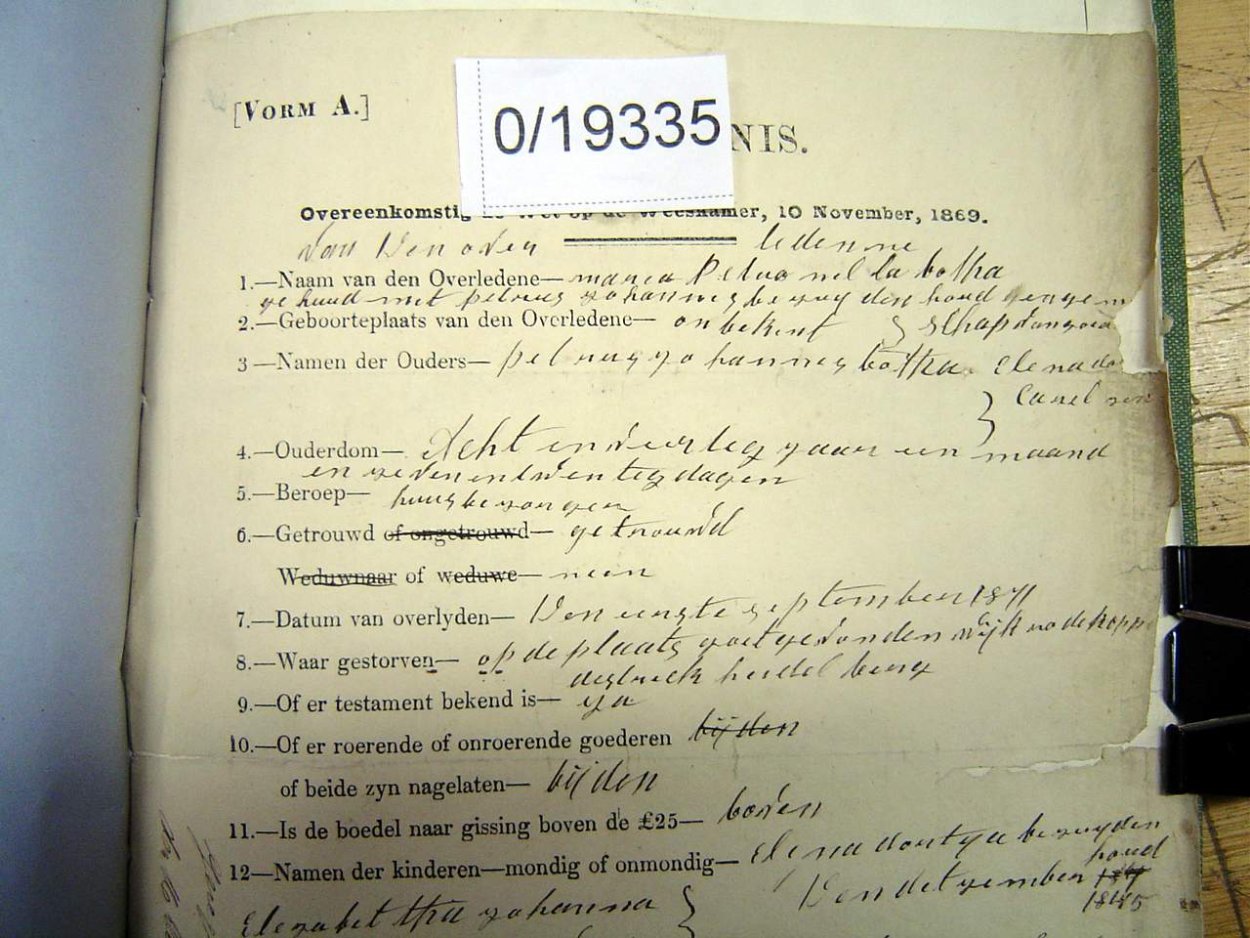 [VORM A.]
0/19335
NIS.
Overeenkomstig de Wet op de Weeskamer, 10 November, 1869.
van den over ledenne
1.—Naam van den Overledene— maria Petronella botha
gehuud met petrus yohannes bezuydenhoud
2.—Geboorteplaats van den Overledene— onbekent
3—Namen der Ouders— petrus yohannes botha Elena
4.—Ouderdom— Acht en veerteg yaar een maand
en zevenentwenteg dagen
5.—Beroep—
6.—Getrouwd of ongetrouwd— getrouwd
Weduwnaar of weduwe— neen
7.—Datum van overlyden— Den eerste september 1871
8.—Waar gestorven— op de plaats goetgevonden wijk
destreck heidelberg
9.—Of er testament bekend is— ya
10.—Of er roerende of onroerende goederen bijden
of beide zyn nagelaten— bijden
11.—Is de boedel naar gissing boven de £25— boven
12—Namen der kinderen—mondig of onmondig— Elena dortya bezuyden
houd
Den detzember
1845
Elezabet tha yohanna